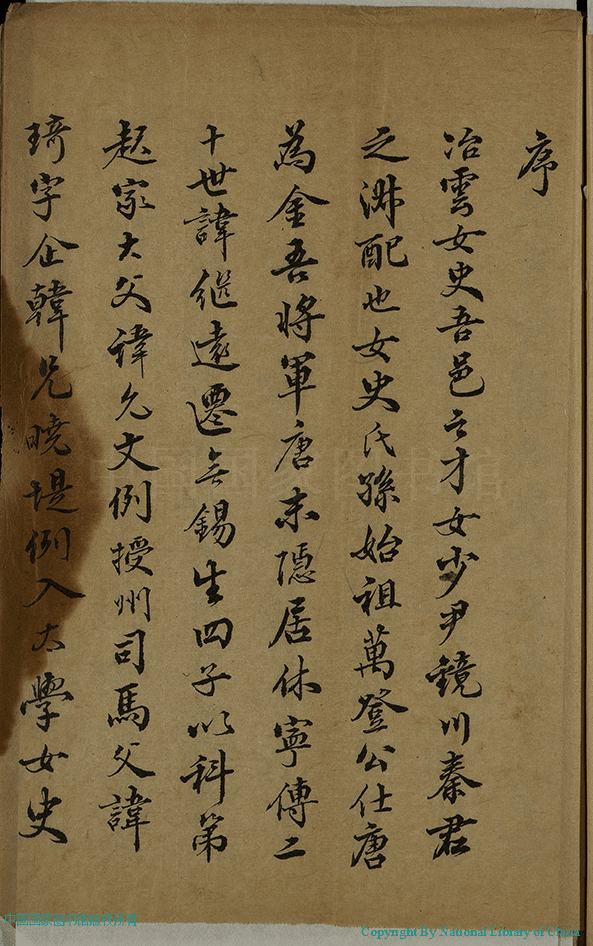 序
冶雲女史吾邑之才女少尹鏡川秦君
之淋配也女史氏孫始祖萬登公仕唐
為金吾將軍唐末隱居休寧傳二
十世諱継遠遷無錫生四子以科第
起家大父諱允文例授州司馬父諱
琦字企韓兄曉堤例入太學女史
中国国家图书馆
Copyright By National Library of China